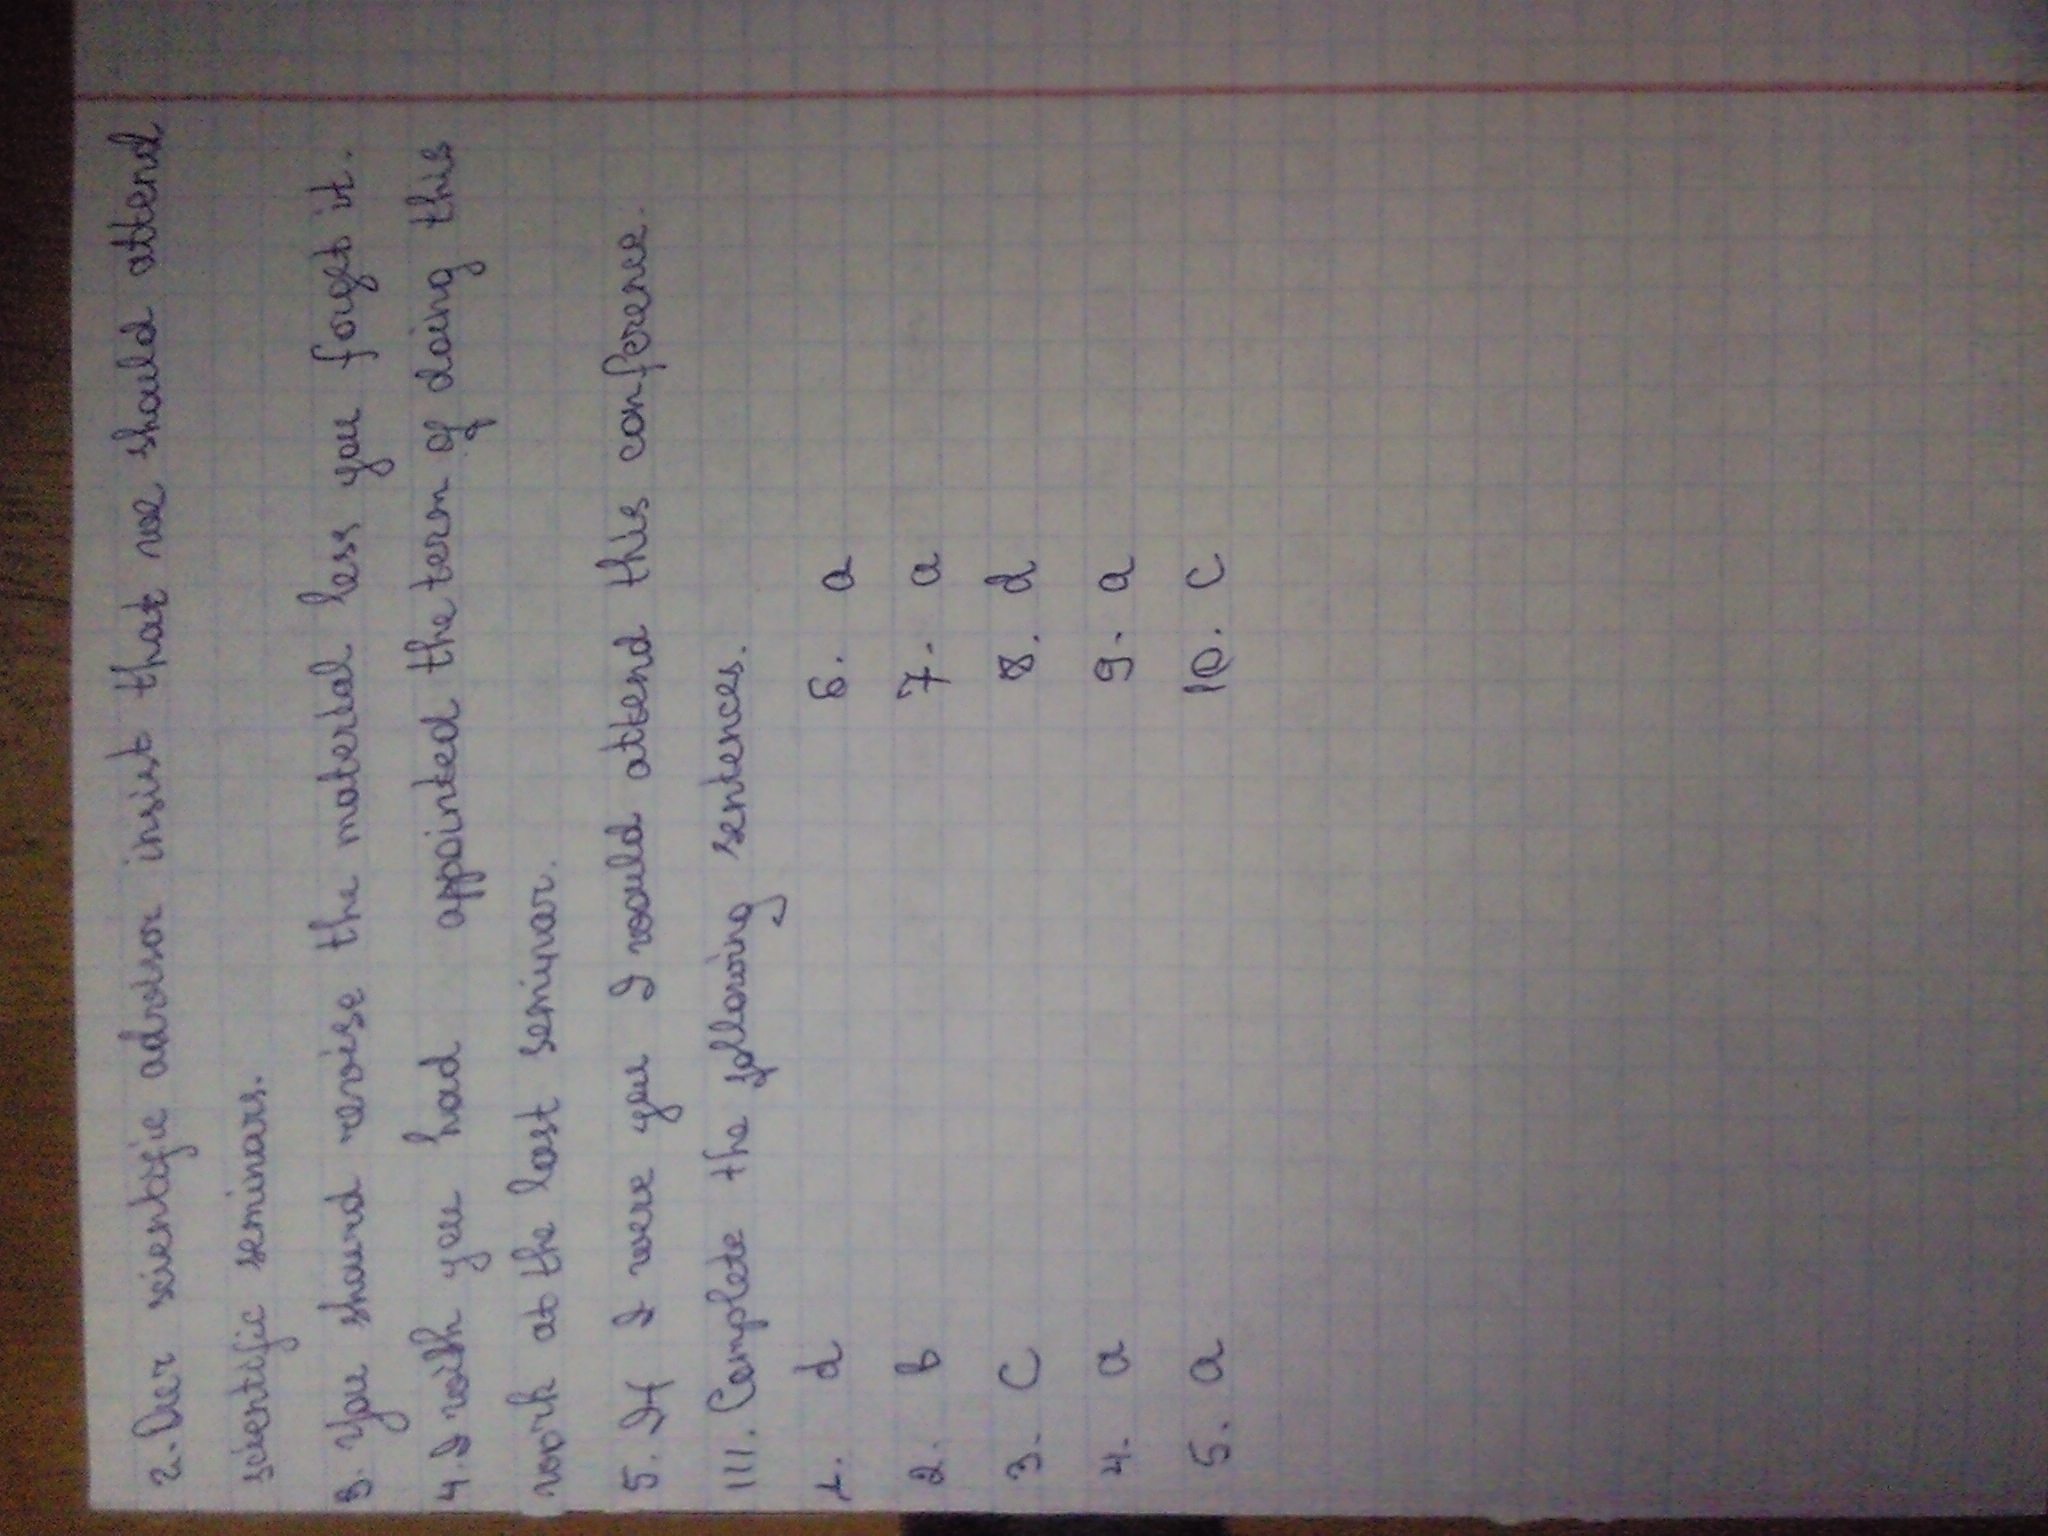 2. Our scientific advisor insist that we should attend
scientific seminars.
3. You should revise the material less you forget it.
4. I wish you had appointed the term of doing this
work at the last seminar.
5. If I were you I would attend this conference.
III. Complete the following sentences.
1. d 6. a
2. b 7. a
3. c 8. d
4. a 9. a
5. a 10. c